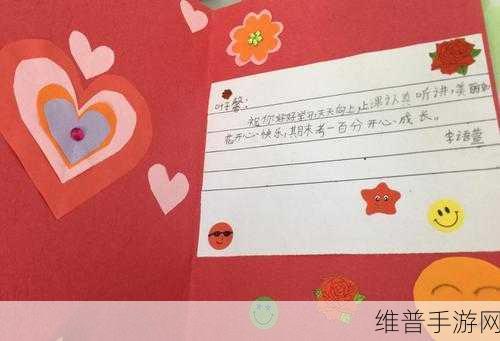 叶子馨:
祝你好好学习天天向上,上课认真听讲,美丽如
花开心快乐,期末考一百分开心成长。
李语萱
维普手游网